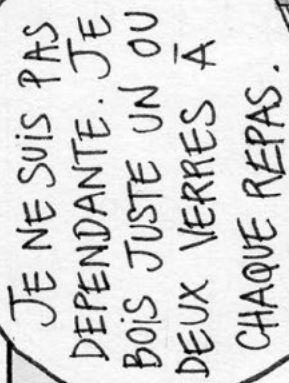 JE NE SUIS PAS
DEPENDANTE. JE
BOIS JUSTE UN OU
DEUX VERRES À
CHAQUE REPAS.